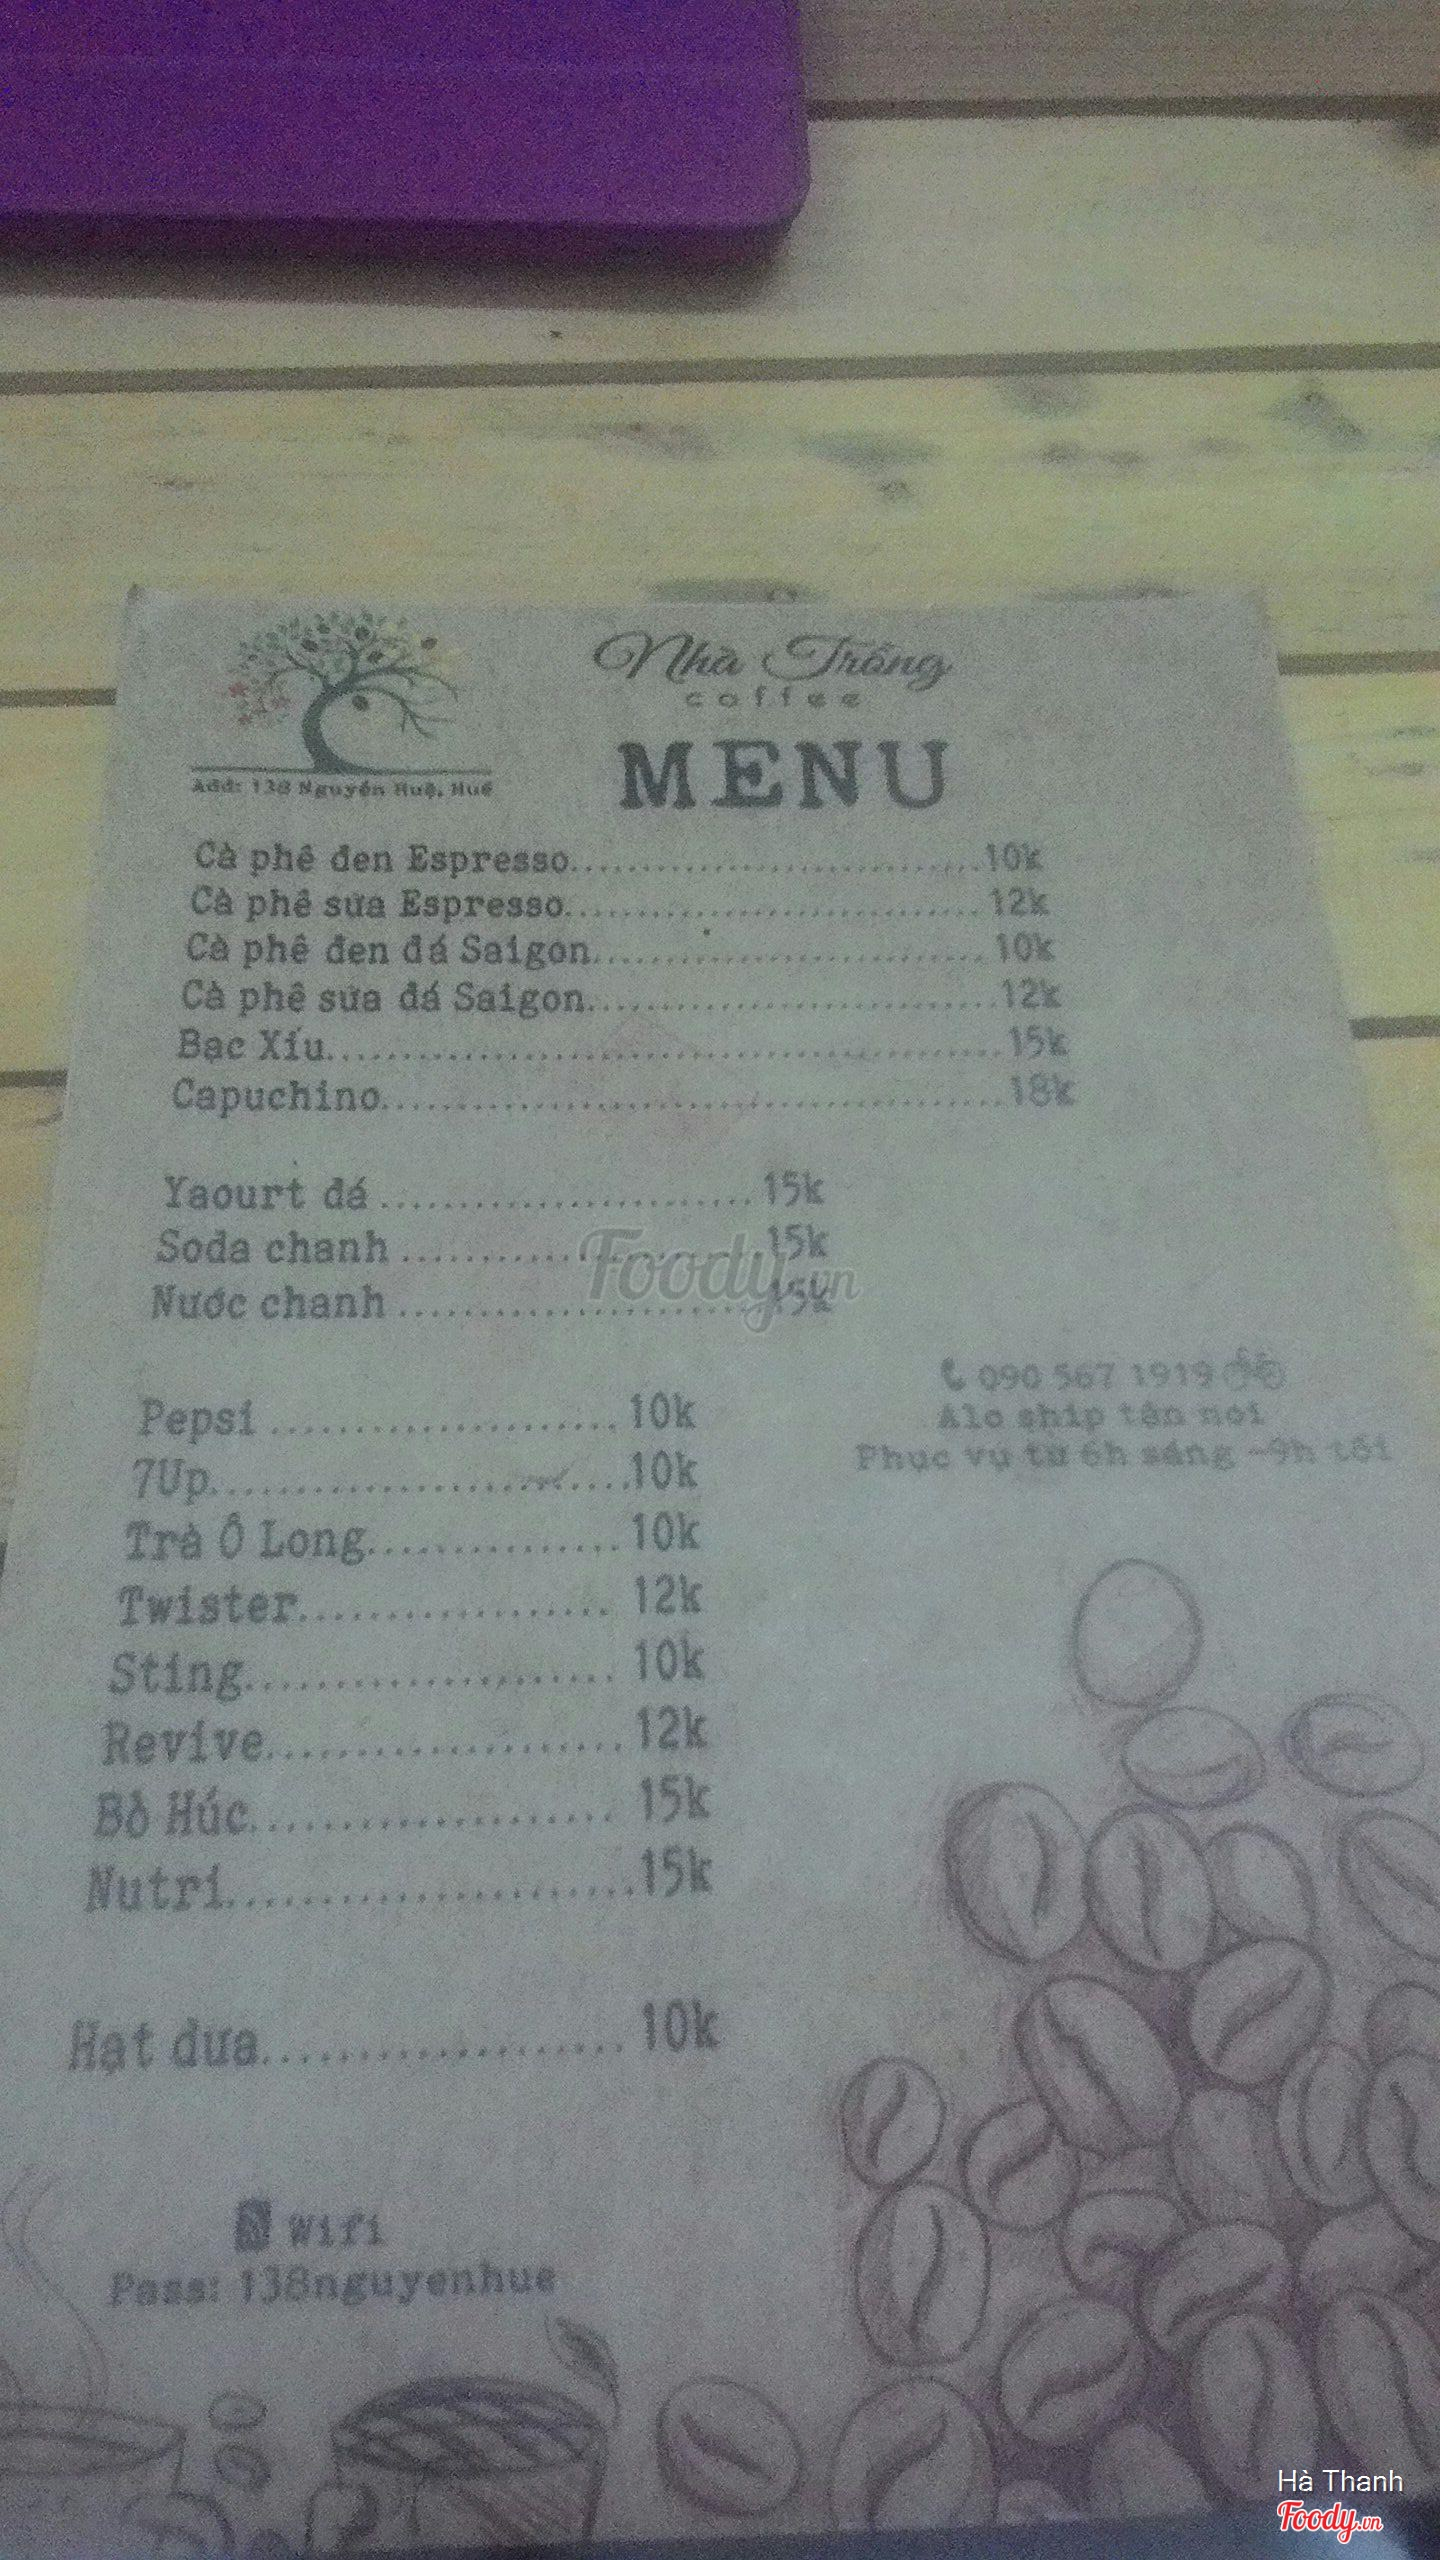 Nhà Trắng
coffee
MENU
Add: 138 Nguyễn Huệ, Huế
Cà phê đen Espresso..............................10k
Cà phê sữa Espresso..............................12k
Cà phê đen đá Saigon............................10k
Cà phê sữa đá Saigon.............................12k
Bạc Xíu...............................................15k
Capuchino...........................................18k
Yaourt đá .......................... 15k
Soda chanh ......................... 15k
Nước chanh ......................... 15k
090 567 1919
Alo ship tận nơi
Phục vụ từ 6h sáng -9h tối
Pepsi ..................... 10k
7Up..........................10k
Trà Ô Long................10k
Twister................... 12k
Sting...................... 10k
Revive.....................12k
Bò Húc..................... 15k
Nutri.......................15k
Hạt dưa................... 10k
Wifi
Pass: 138nguyenhue
Foody.vn
Hà Thanh
Foody.vn